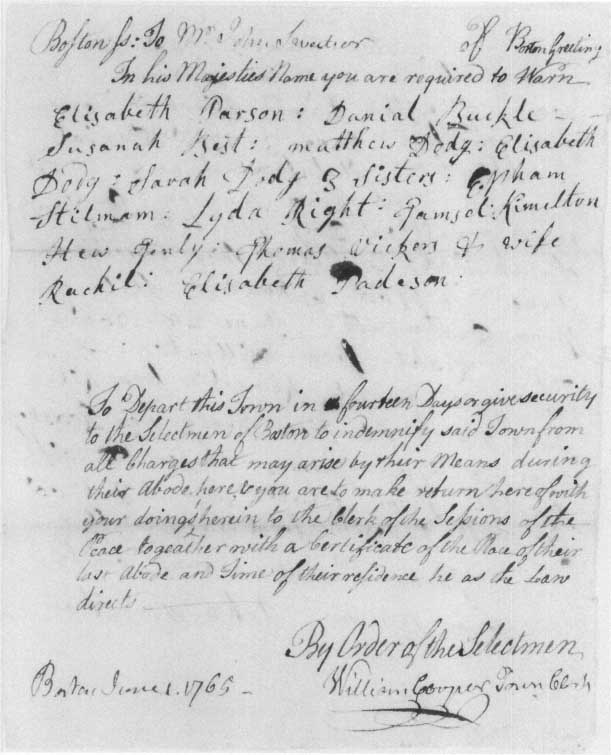 Boston ss: To Mr. John Sweetser of Boston Greeting
In his Majesties Name you are required to Warn
Elisabeth Parson: Danial Buckle
Susanah Hest: matthew Dody: Elisabeth
Dody: Sarah Dody 3 Sisters: Epham
Stilmam: Lyda Right: Kimelton
Hew: Thomas Vickers & wife
Ruchil: Elisabeth Padeson:
To Depart this Town in fourteen Days or give security
to the Selectmen of Boston to indemnify said Town from
all Charges that may arise by their Means during
their Abode here, & you are to make return hereof with
your doings herein to the Clerk of the Sessions of the
Peace togeather with a Certificate of the Place of their
last Abode and Time of their residence he as the Law
directs
By Order of the Selectmen
Boston June 1. 1765 William Cooper Town Clerk